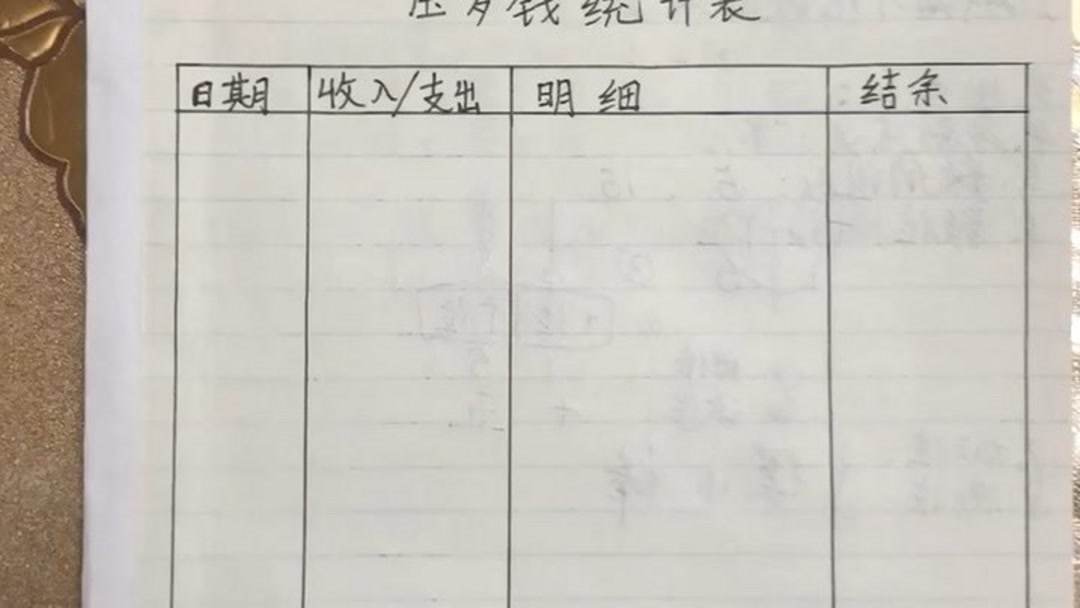 压岁钱统计表
日期 收入/支出 明细 结余